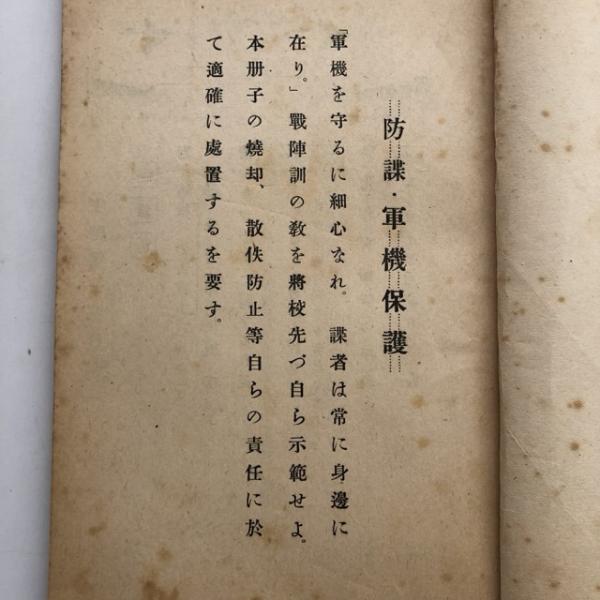 防諜・軍機保護
「軍機を守るに細心なれ。諜者は常に身邊に
在り。」戰陣訓の敎を將校先づ自ら示範せよ。
本册子の燒却、散佚防止等自らの責任に於
て適確に處置するを要す。